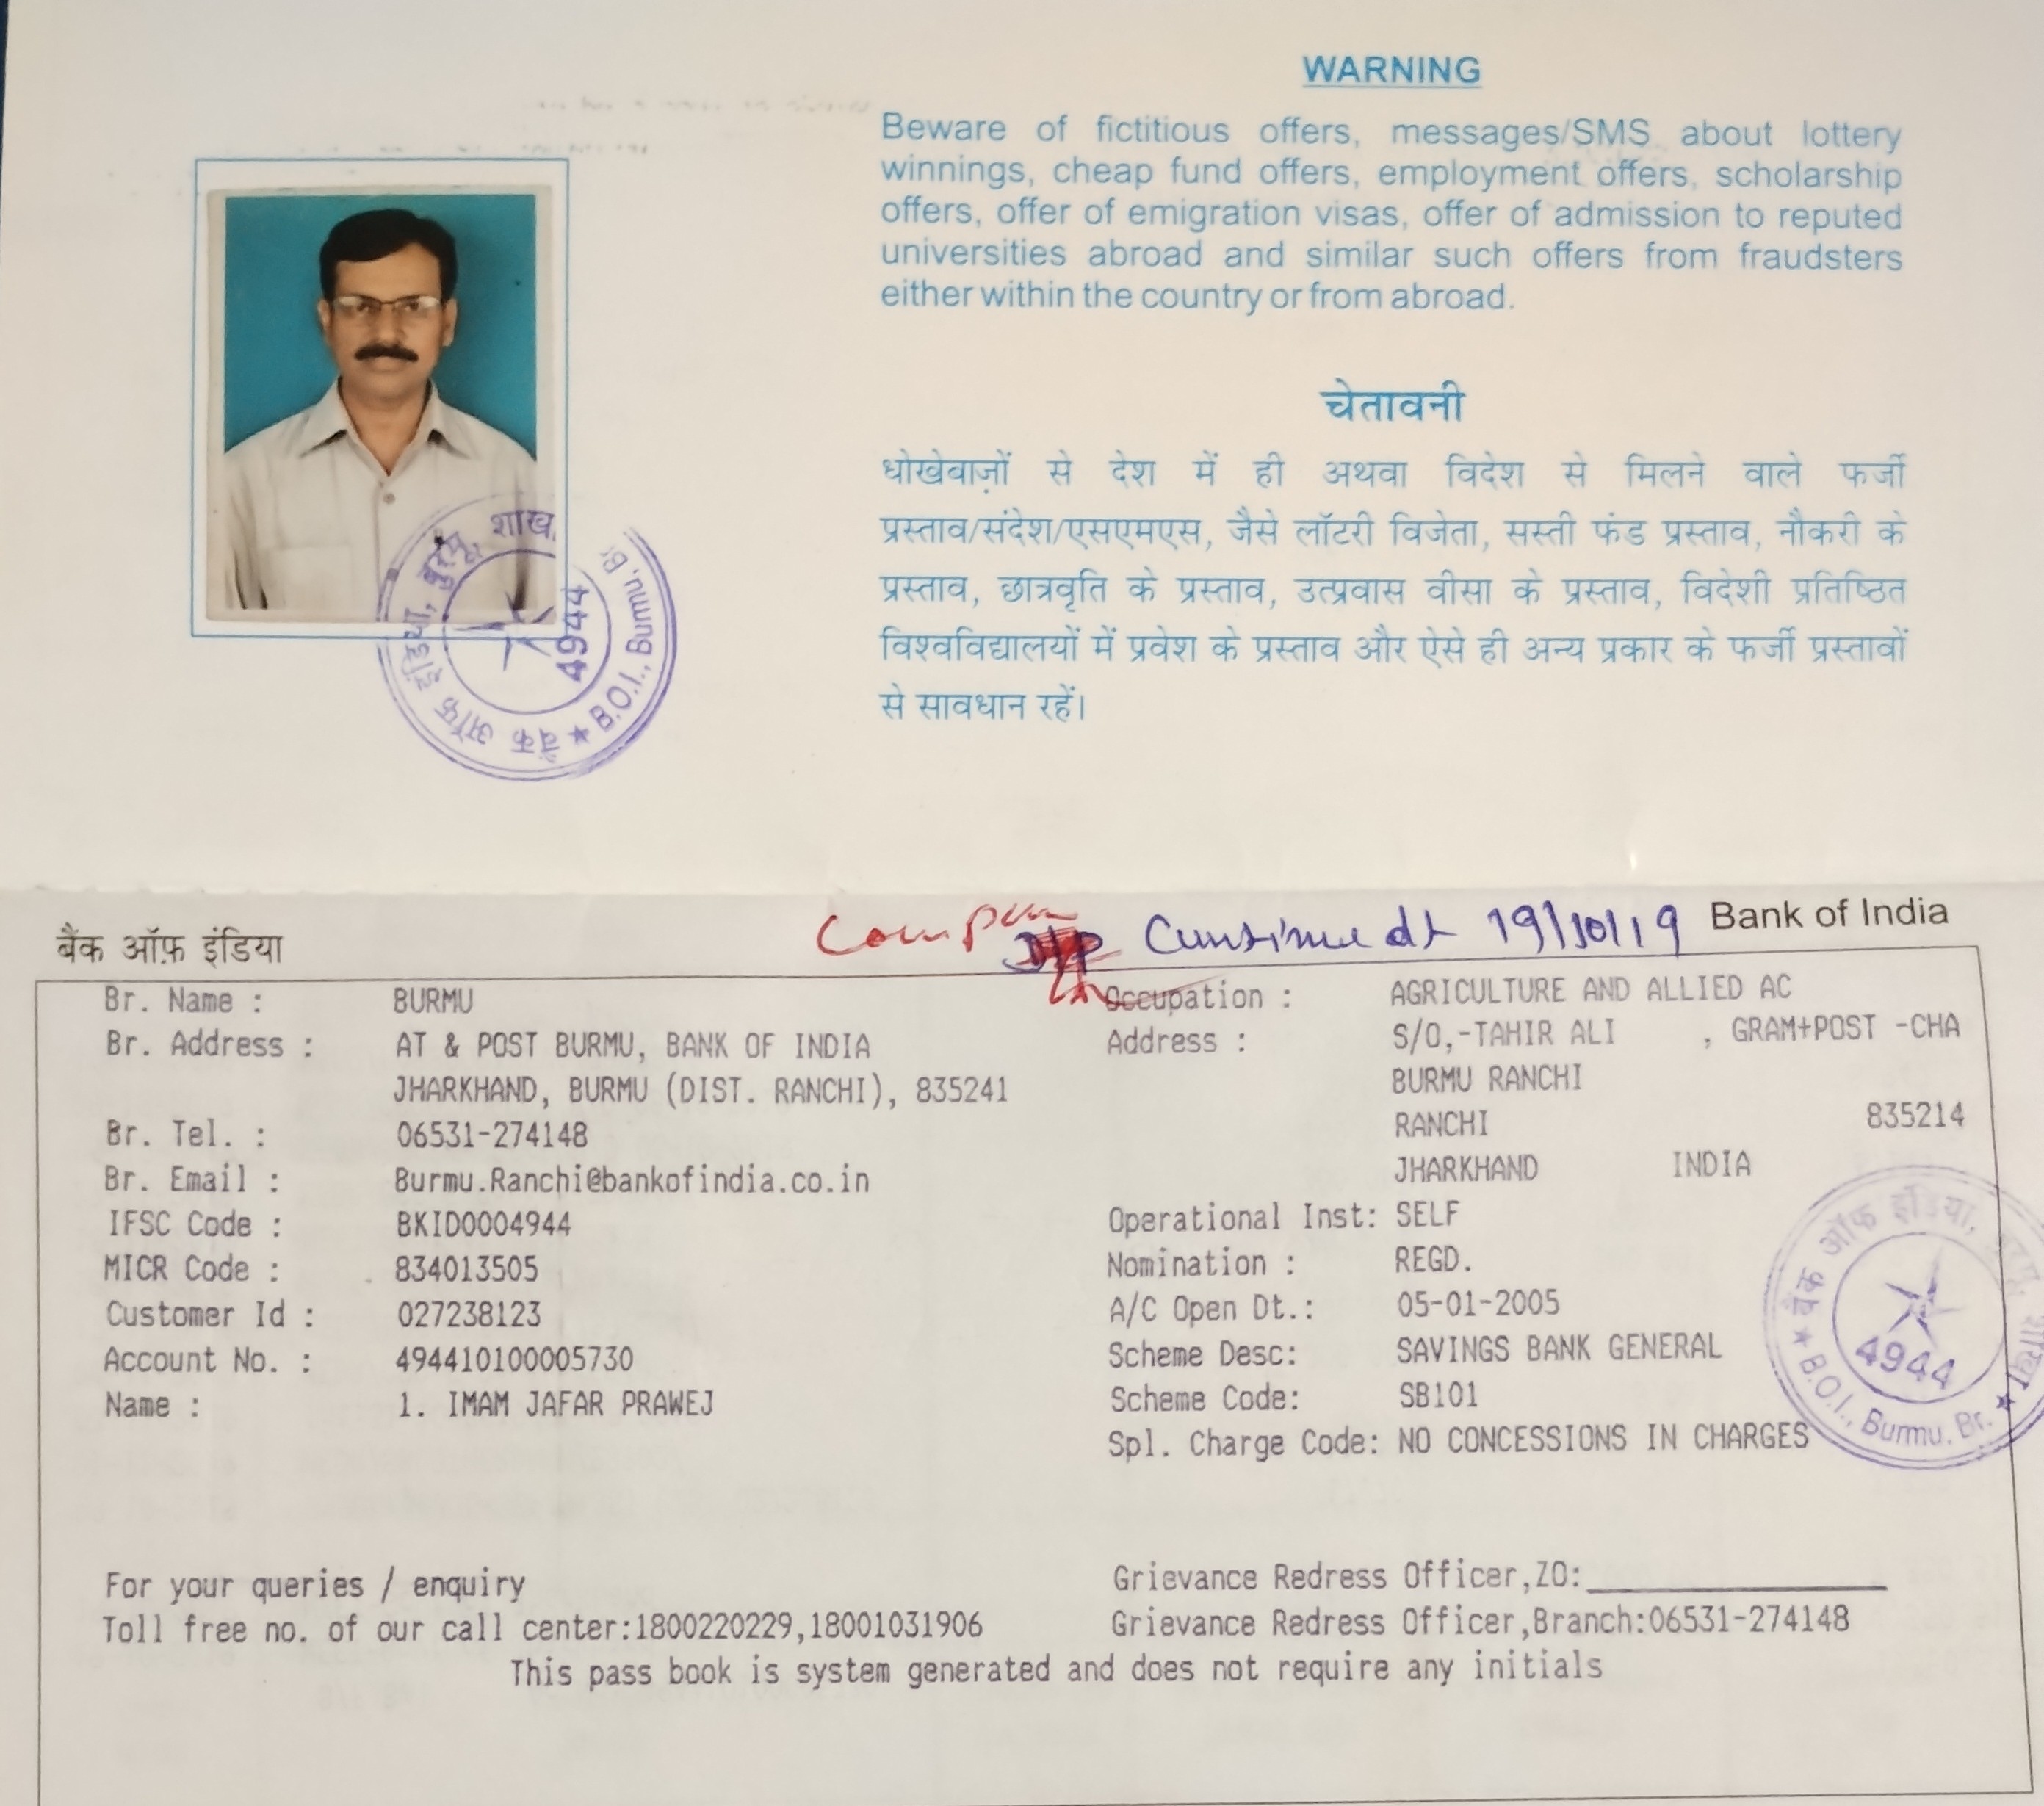 WARNING
Beware of fictitious offers, messages/SMS about lottery
winnings, cheap fund offers, employment offers, scholarship
offers, offer of emigration visas, offer of admission to reputed
universities abroad and similar such offers from fraudsters
either within the country or from abroad.
चेतावनी
धोखेबाज़ों से देश में ही अथवा विदेश से मिलने वाले फर्जी
प्रस्ताव/संदेश/एसएमएस, जैसे लॉटरी विजेता, सस्ती फंड प्रस्ताव, नौकरी के
प्रस्ताव, छात्रवृति के प्रस्ताव, उत्प्रवास वीसा के प्रस्ताव, विदेशी प्रतिष्ठित
विश्वविद्यालयों में प्रवेश के प्रस्ताव और ऐसे ही अन्य प्रकार के फर्जी प्रस्तावों
से सावधान रहें।
बैंक ऑफ इंडिया, बुरमू, शाख
4944
B.O.I., Burmu, Br
बैंक ऑफ़ इंडिया
dt 19/10/19
Bank of India
Br. Name : BURMU
Br. Address : AT & POST BURMU, BANK OF INDIA
JHARKHAND, BURMU (DIST. RANCHI), 835241
Br. Tel. : 06531-274148
Br. Email : Burmu.Ranchi@bankofindia.co.in
IFSC Code : BKID0004944
MICR Code : 834013505
Customer Id : 027238123
Account No. : 494410100005730
Name : 1. IMAM JAFAR PRAWEJ
Occupation : AGRICULTURE AND ALLIED AC
Address : S/O,-TAHIR ALI , GRAM+POST -CHA
BURMU RANCHI
RANCHI 835214
JHARKHAND INDIA
Operational Inst: SELF
Nomination : REGD.
A/C Open Dt.: 05-01-2005
Scheme Desc: SAVINGS BANK GENERAL
Scheme Code: SB101
Spl. Charge Code: NO CONCESSIONS IN CHARGES
बैंक ऑफ इंडिया,
4944
B.O.I., Burmu. Br.
For your queries / enquiry
Toll free no. of our call center:1800220229,18001031906
Grievance Redress Officer,ZO:
Grievance Redress Officer,Branch:06531-274148
This pass book is system generated and does not require any initials